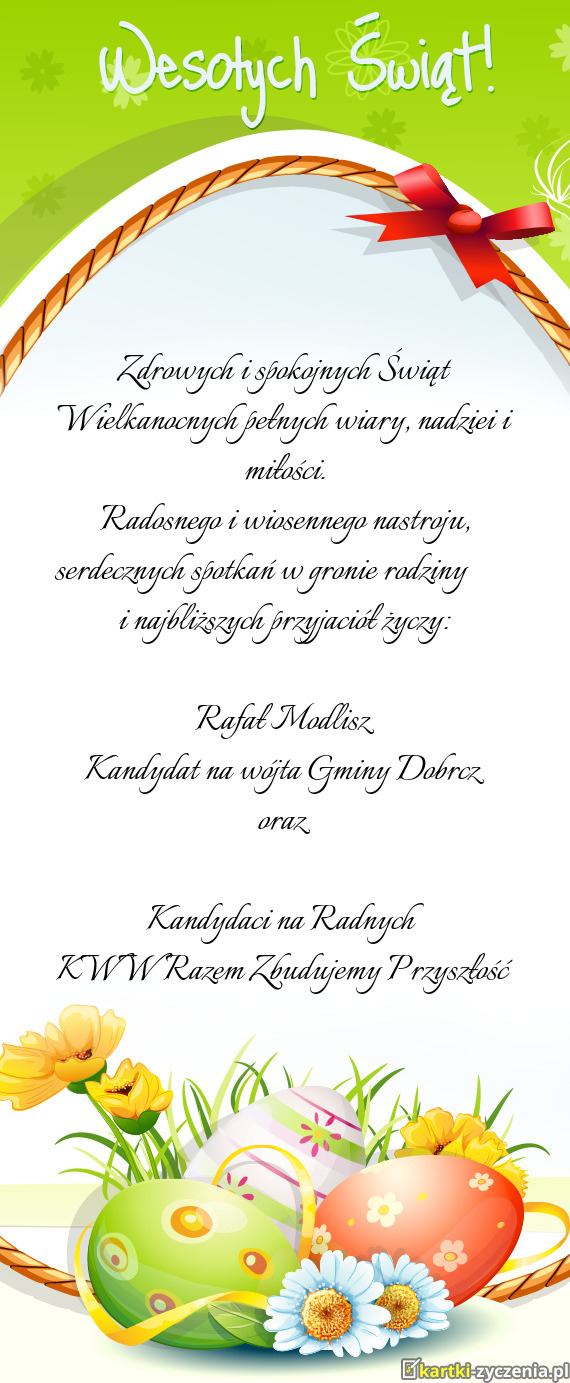 Wesołych Świąt!
Zdrowych i spokojnych Świąt
Wielkanocnych pełnych wiary, nadziei i
miłości.
Radosnego i wiosennego nastroju,
serdecznych spotkań w gronie rodziny
i najbliższych przyjaciół życzy:
Rafał Modlisz
Kandydat na wójta Gminy Dobrcz
oraz
Kandydaci na Radnych
KWW Razem Zbudujemy Przyszłość
kartki-zyczenia.pl